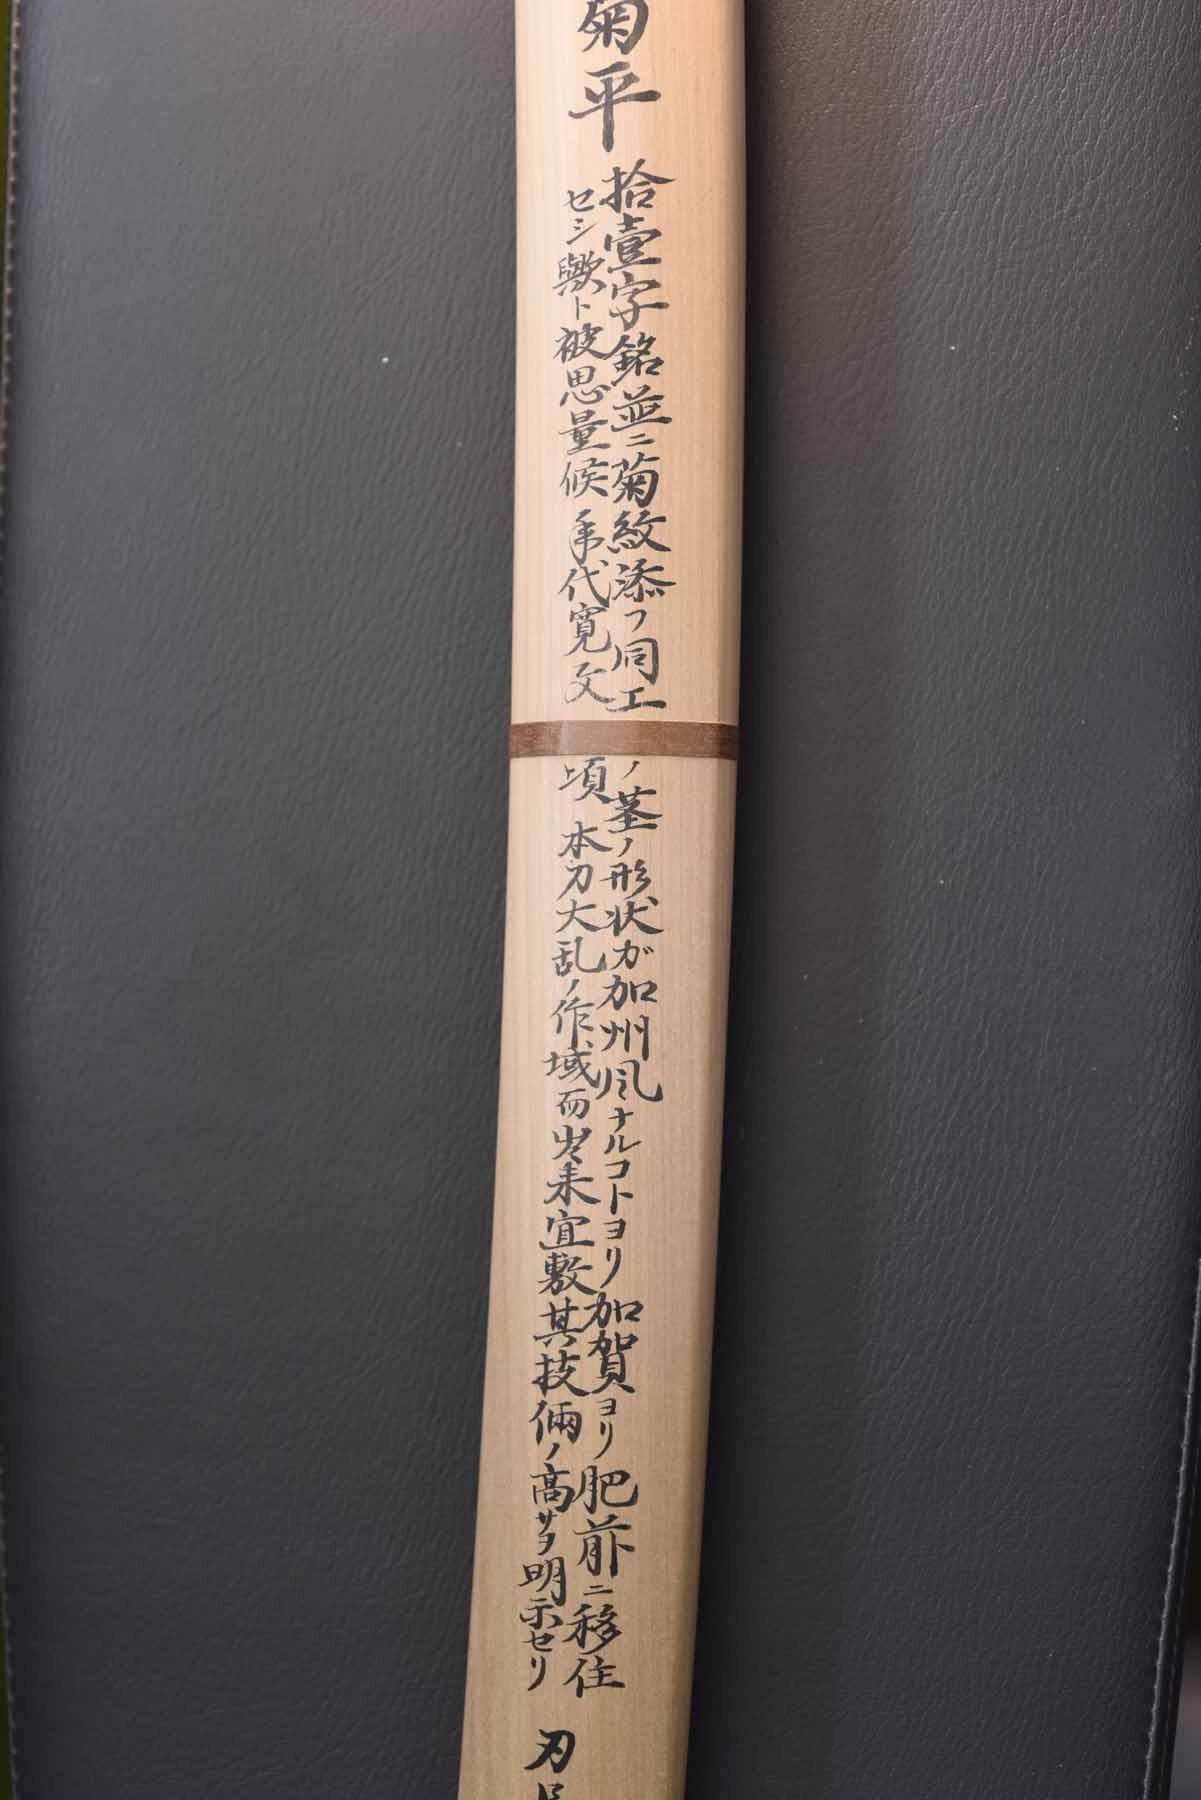 菊平
拾壹字銘並ニ菊紋添フ同工ノ茎ノ形状ガ加州風ナルコトヨリ加賀ヨリ肥前ニ移住
セシ歟ト被思量候年代寛文頃 本刀大乱ノ作域而出来宜敷其技倆ノ高サヲ明示セリ
刃